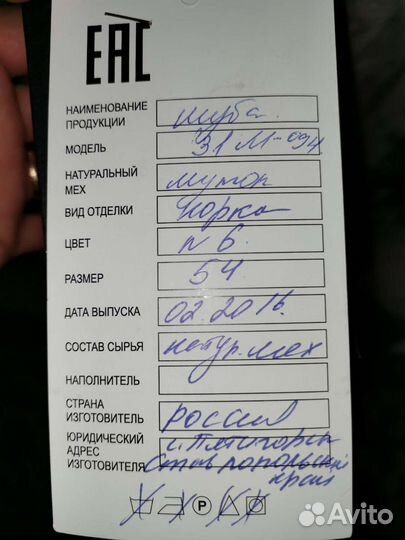 EAC
НАИМЕНОВАНИЕ ПРОДУКЦИИ шуба
МОДЕЛЬ 31М-094
НАТУРАЛЬНЫЙ МЕХ мутон
ВИД ОТДЕЛКИ Норка
ЦВЕТ N 6
РАЗМЕР 54
ДАТА ВЫПУСКА 02.2016
СОСТАВ СЫРЬЯ натур. мех
НАПОЛНИТЕЛЬ
СТРАНА ИЗГОТОВИТЕЛЬ РОССИЯ
ЮРИДИЧЕСКИЙ г. Пятигорск
АДРЕС
ИЗГОТОВИТЕЛЯ Ставропольский
край
P
Avito